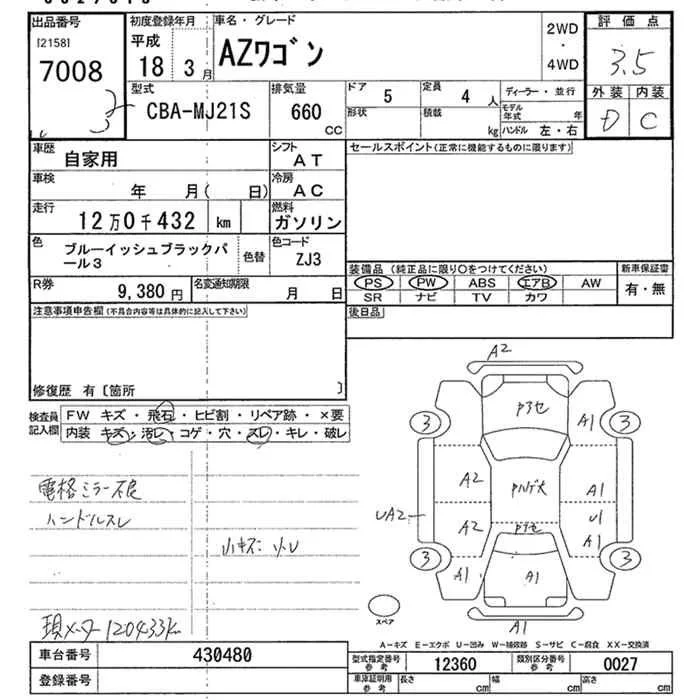 出品番号 初度登録年月 車名・グレード 2WD・4WD 評価点
[2158] 7008 平成 18 3月 AZワゴン 3.5
型式 CBA-MJ21S 排気量 660 CC ドア 5 定員 4人 ディーラー・並行 外装 内装
形状 積載 kg モデル年式 年 ハンドル 左・右 D C
車歴 自家用 シフト AT セールスポイント(正常に機能するものに限ります)
車検 年 月( 日) 冷房 AC
走行 12万0千432 km 燃料 ガソリン
色 ブルーイッシュブラックパール3 色替 色コード ZJ3
装備品(純正品に限り〇をつけてください) 新車保証書
PS PW ABS エアB AW 有・無
SR ナビ TV カワ
R券 9,380円 名変通知期限 月 日 後日品
注意事項申告欄(不具合内容等は具体的に記入して下さい)
修復歴 有〔箇所 〕
検査員記入欄 FW キズ・飛石・ヒビ割・リペア跡・×要
内装 キズ・汚レ・コゲ・穴・スレ・キレ・破レ
電格ミラー不良
ハンドルスレ
小キズ 小U
現メーター120433km
A2
3 A1 3
A2 A1
UA2 A2 U1 A1
3 A1 A1 3
スペア A1
A-キズ E-エクボ U-凹み W-補修跡 S-サビ C-腐食 XX-交換済
車台番号 430480 型式指定番号 参考 12360 類別区分番号 参考 0027
登録番号 車庫証明用 参考 長さ cm 幅 cm 高さ cm